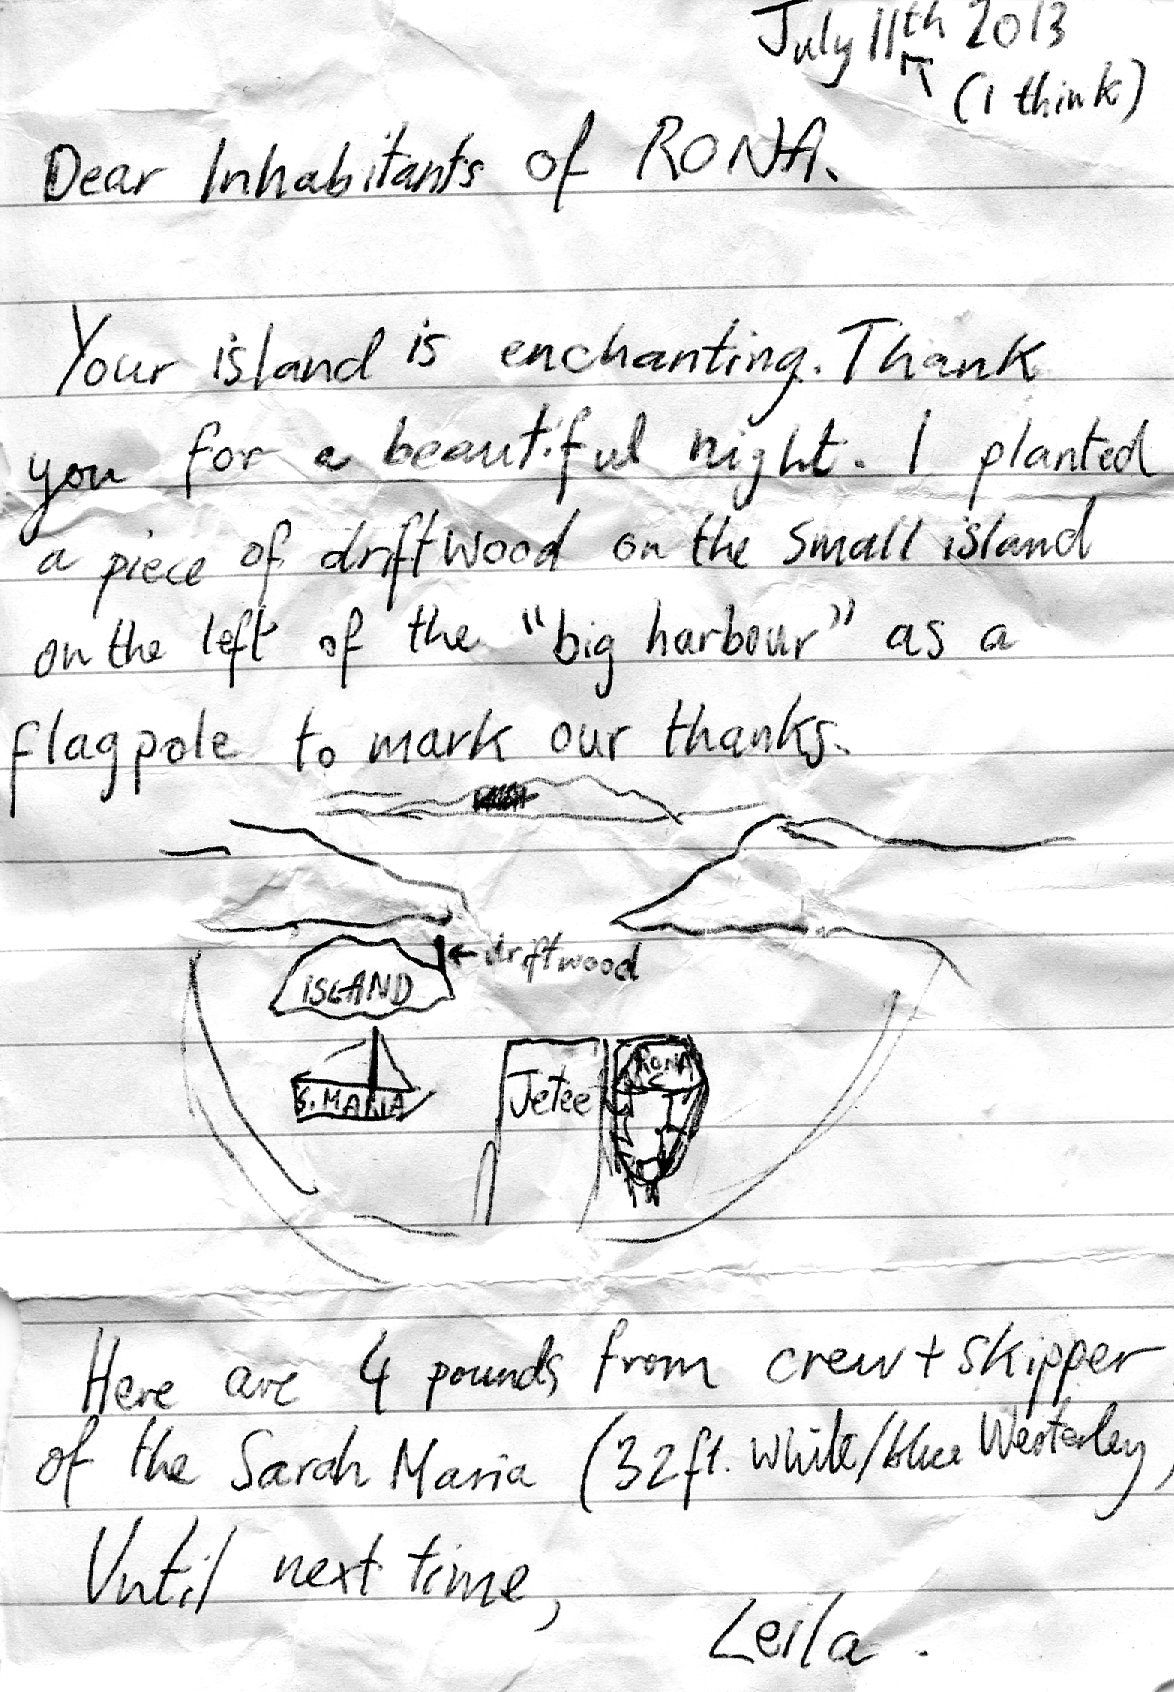 July 11th 2013
(I think)
Dear Inhabitants of RONA.
Your island is enchanting. Thank
you for a beautiful night. I planted
a piece of driftwood on the small island
on the left of the "big harbour" as a
flagpole to mark our thanks.
driftwood
ISLAND
S. MARIA
Jetee
RONA
Here are 4 pounds from crew + skipper
of the Sarah Maria (32ft. white/blue Westerley)
Until next time,
Leila.